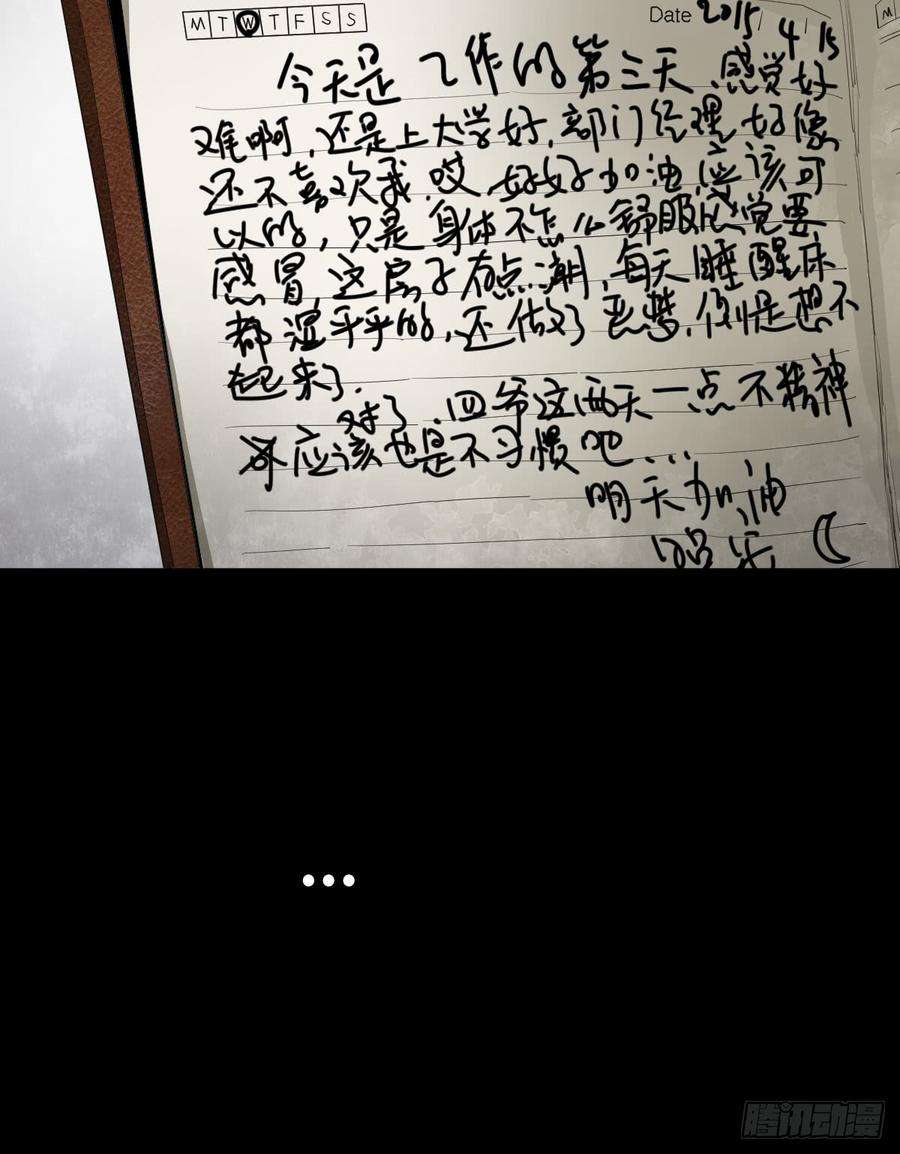 M T W T F S S Date 2015 / 4 / 15
M
今天是工作的第三天,感觉好
难啊,还是上大学好,部门经理好像
还不喜欢我,哎,好好加油,应该可
以的,只是身体不怎么舒服感觉要
感冒,这房子有点潮,每天睡醒床
都湿乎乎的,还做了恶梦,倒是想不
起来了.
对了,四爷这两天一点不精神
应该也是不习惯吧...
明天加油
...
腾讯动漫